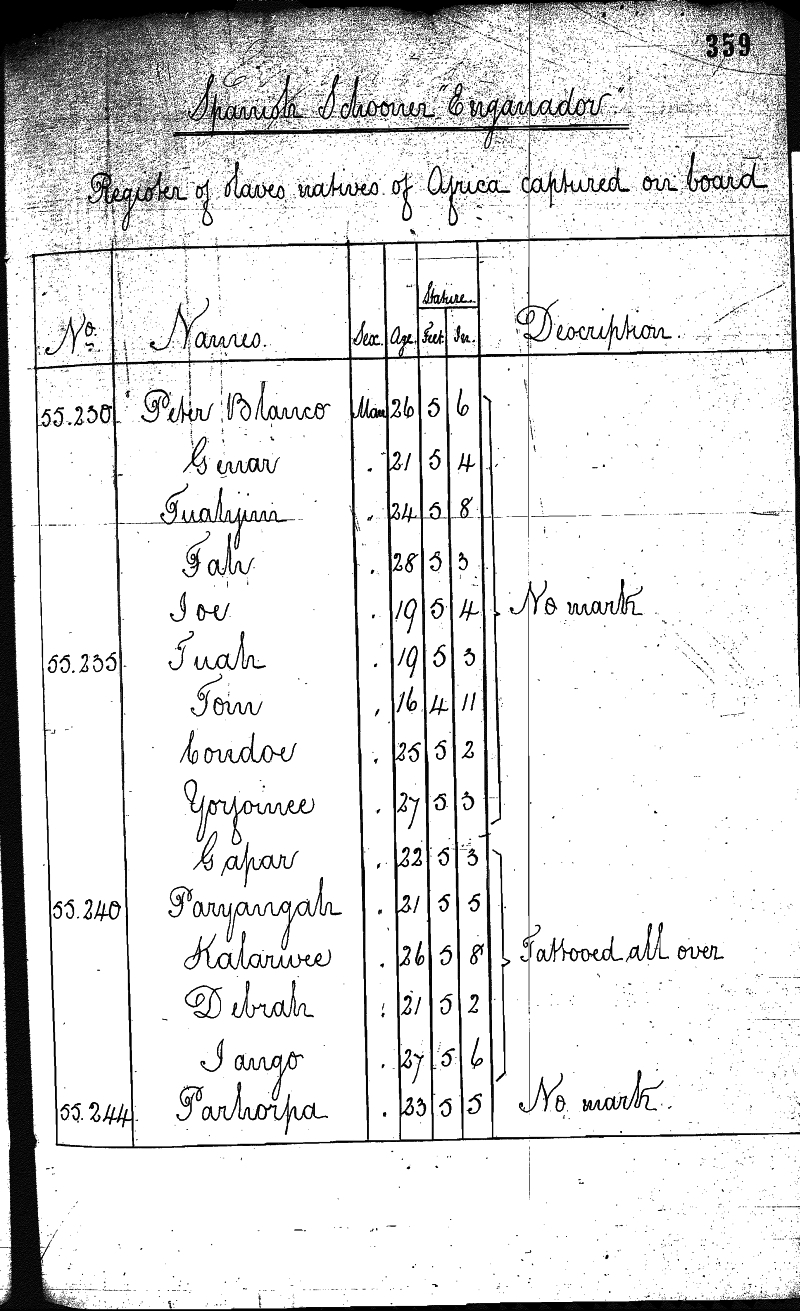 359
Spanish Schooner "Enganador"
Register of slaves natives of Africa captured on board
Stature.
No. Names. Sex. Age. Feet In. Description.
55.230 Peter Blanco Man 26 5 6
Genar . 21 5 4
Tuahjim . 24 5 8
Fah . 28 5 3
Joe . 19 5 4 No mark
55.235 Tuah . 19 5 3
Tom . 16 4 11
Condoe . 25 5 2
Yoryoinee . 27 5 3
Gapar . 22 5 3
55.240 Paryangah . 21 5 5
Kalarwee . 26 5 8 Tattooed all over
Debrah . 21 5 2
Jango . 27 5 6
55.244 Parhorpa . 23 5 5 No mark.